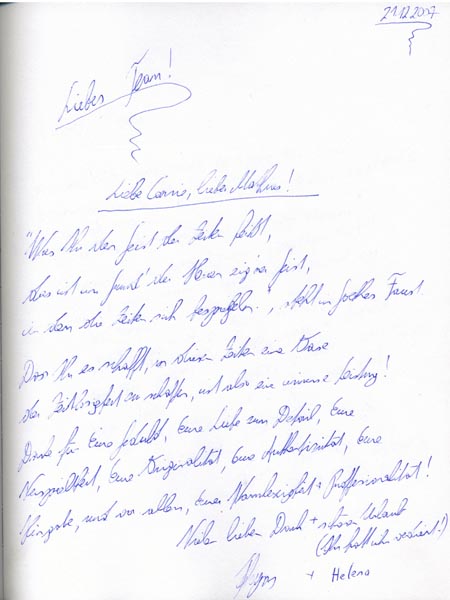 21.12.2007
Liebes Team!
Liebe Connie, lieber Mathias!
"Was Ihr den Geist der Zeiten heißt,
das ist im Grund' der Herren eig'ner Geist,
in dem die Zeiten sich bespiegeln.", steht in Goethes Faust.
Dass Ihr es schafft, in diesen Zeiten eine Oase
der Zeitlosigkeit zu schaffen, ist also eine immense Leistung!
Danke für Eure Geduld, Eure Liebe zum Detail, Eure
Verspieltheit, Eure Originalität, Eure Authentizität, Eure
Hingabe, und vor allem, Eure +Professionalität!
Vielen lieben Dank + schönen Urlaub
(Ihr habt ihn verdient!)
+ Helena